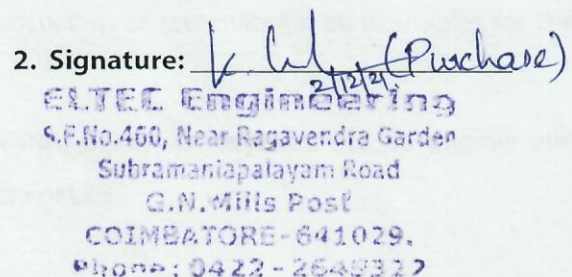 2. Signature: (Purchase)
2/12/21
ELTEC Engineering
S.F.No.460, Near Ragavendra Garden
Subramaniapalayam Road
G.N.Mills Post
COIMBATORE-641029.
Phone: 0422-2648337